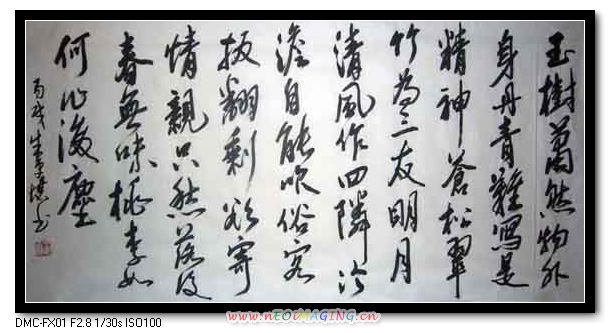 玉樹蕭然物外
身丹青難寫是
精神蒼松翠
竹為三友明月
清風作四隣冷
澹自能吹俗客
扳翻剩欲寄
情親只然落後
春無味桃李如
何心後塵
丙戌
www.nEOiMAGiNG.cn
DMC-FX01 F2.8 1/30s ISO100